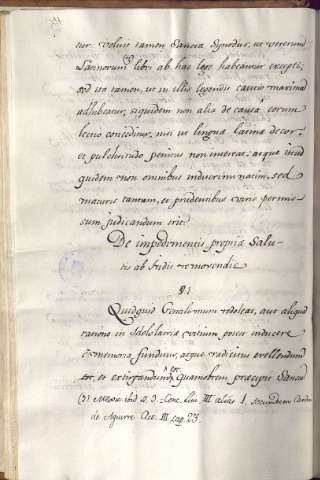 tur voluit tamen Sancta Synodus, ut veterum
Latinorum (3) libri ab hac lege habeantur excepti;
sed ita tamen, ut in illis legendis cautio maxima
adhibeatur, siquidem non alia de causa eorum
lectio conceditur, nisi ut linguæ latinæ decor,
et pulchritudo penitus non intereat, atque inid
quidem non omnibus indiscriminatim, sed
maturis tantum, et prudentibus viris permis
sum judicandum erit.
De impedimentis propriæ Salu-
tis ab Indis removendis
§. 1
Quidquid Gentilismum redoleat, aut aliqua
ratione in Idololatriæ vitium potest inducere
è memoria funditus, atque radicitus evellendum
est, et extirpandum est. Quamobrem præcipit Sanct
(3) Mexic. ibid. §. 3. Conc. Lim. III. alias 1. secundum Cardin
de Aguirre Act. III. pag. 23.